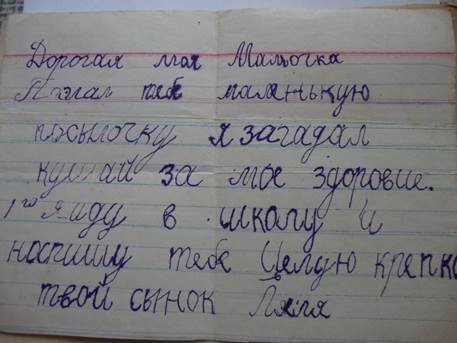 Дорогая моя Мамочка
Паслал тебе маленькую
посылочку я загадал
кушай за мое здоровие.
1го я иду в школу и
напишу тебе Целую крепко
твой сынок Ляля